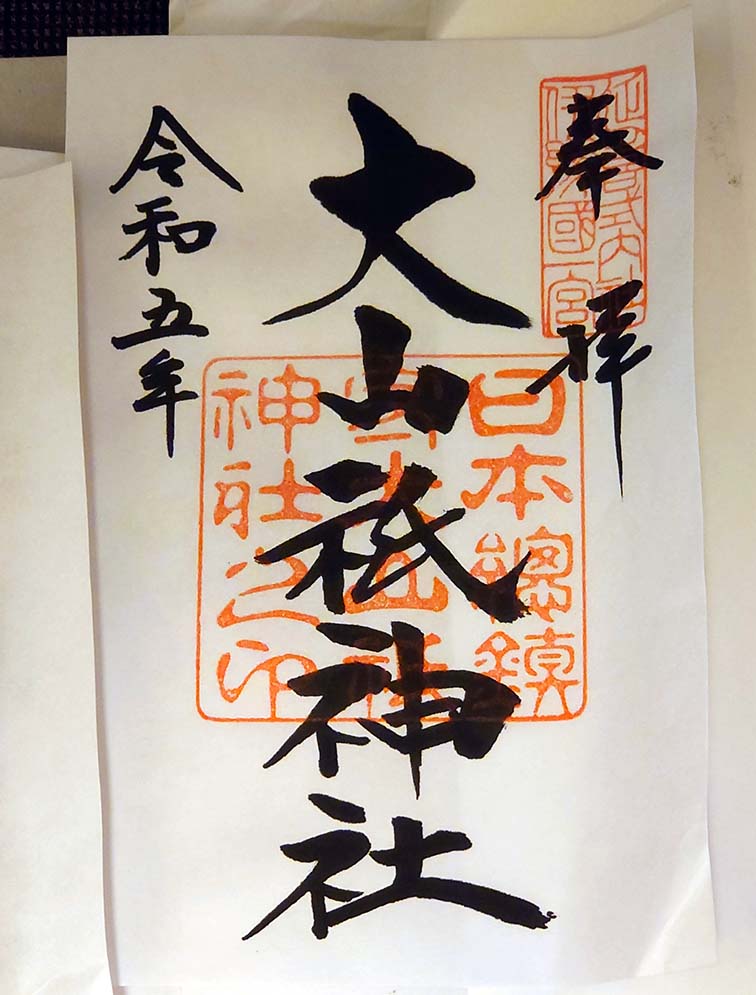 奉拝
延喜式内社
伊豫國一宮
大山祇神社
日本總鎮
大山
神社之印
令和五年